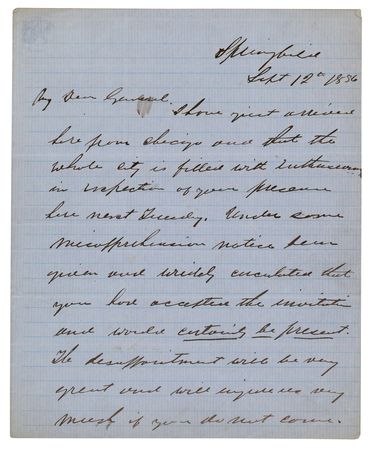 Springfield
Sept 12th 1856
My Dear General.
I have just arrived
here from Chicago and that the
whole city is filled with enthusiasm
in expectation of your presence
here next Tuesday. Under some
misapprehension notice been
given and widely circulated that
you had accepted the invitation
and would certainly be present.
The disappointment will be very
great and will injure us very
much if you do not come.